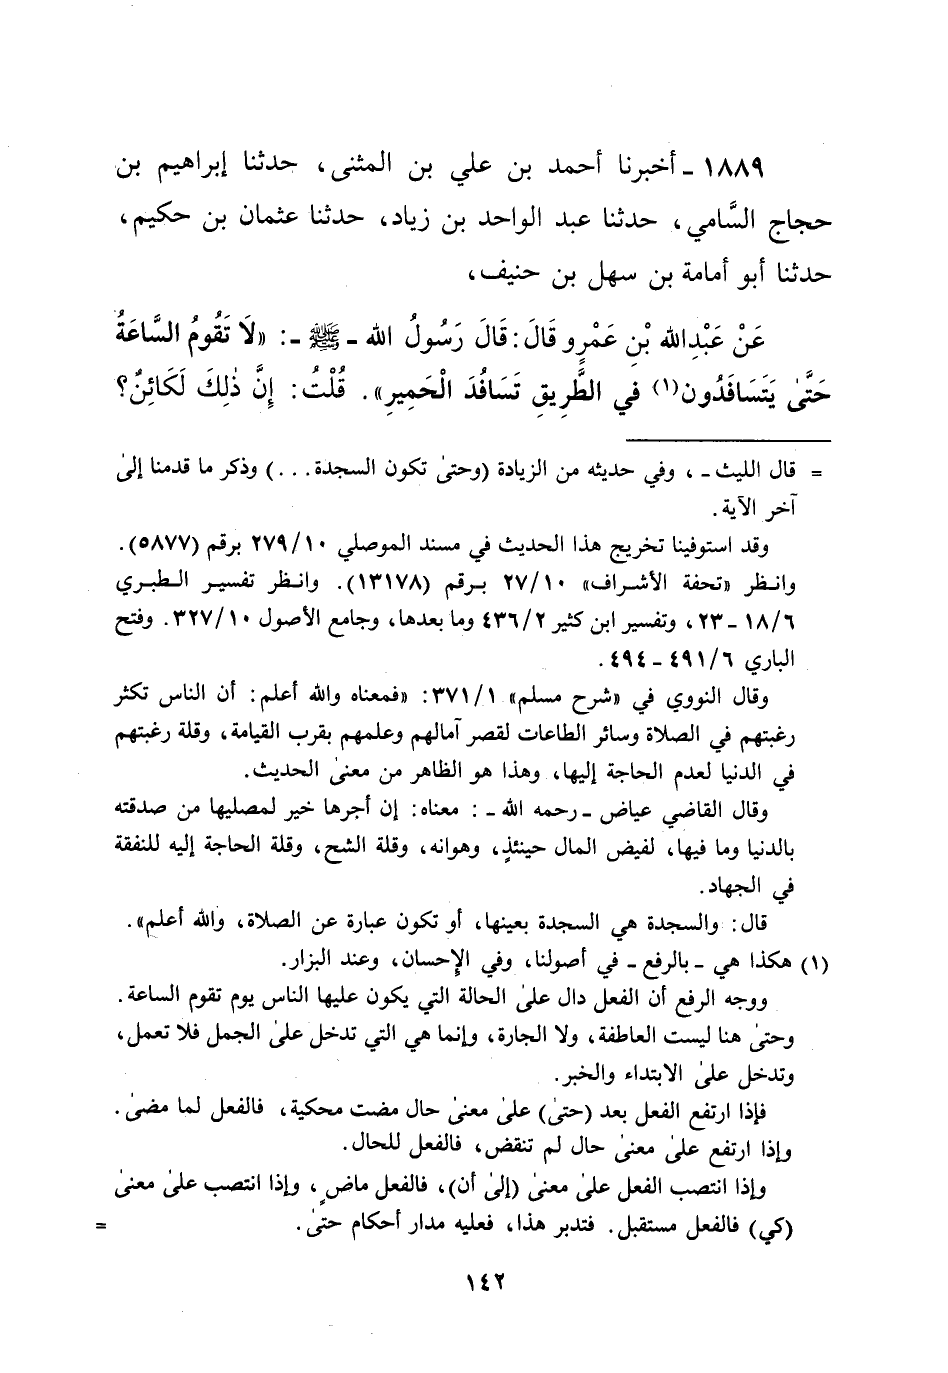 ١٨٨٩ - أخبرنا أحمد بن علي بن المثنى، حدثنا إبراهيم بن
حجاج السَّامي، حدثنا عبد الواحد بن زياد، حدثنا عثمان بن حكيم،
حدثنا أبو أمامة بن سهل بن حنيف،
عَنْ عَبْدِالله بْنِ عَمْرٍو قَالَ: قَالَ رَسُولُ الله - ﷺ -: «لَا تَقُومُ السَّاعَةُ
حَتَّىٰ يَتَسَافَدُون(١) فِي الطَّرِيقِ تَسَافُدَ الْحَمِيرِ». قُلْتُ: إِنَّ ذٰلِكَ لَكَائِنٌ؟
= قال الليث -، وفي حديثه من الزيادة (وحتىٰ تكون السجدة...) وذكر ما قدمنا إلىٰ
آخر الآية.
وقد استوفينا تخريج هذا الحديث في مسند الموصلي ٢٧٩/١٠ برقم (٥٨٧٧).
وانظر «تحفة الأشراف» ٢٧/١٠ برقم (١٣١٧٨). وانظر تفسير الطبري
١٨/٦ - ٢٣، وتفسير ابن كثير ٤٣٦/٢ وما بعدها، وجامع الأصول ٣٢٧/١٠. وفتح
الباري ٤٩١/٦ - ٤٩٤.
وقال النووي في «شرح مسلم» ٣٧١/١: «فمعناه والله أعلم: أن الناس تكثر
رغبتهم في الصلاة وسائر الطاعات لقصر آمالهم وعلمهم بقرب القيامة، وقلة رغبتهم
في الدنيا لعدم الحاجة إليها، وهذا هو الظاهر من معنىٰ الحديث.
وقال القاضي عياض - رحمه الله -: معناه: إن أجرها خير لمصليها من صدقته
بالدنيا وما فيها، لفيض المال حينئذٍ، وهوانه، وقلة الشح، وقلة الحاجة إليه للنفقة
في الجهاد.
قال: والسجدة هي السجدة بعينها، أو تكون عبارة عن الصلاة، والله أعلم».
(١) هكذا هي - بالرفع - في أصولنا، وفي الإحسان، وعند البزار.
ووجه الرفع أن الفعل دال علىٰ الحالة التي يكون عليها الناس يوم تقوم الساعة.
وحتىٰ هنا ليست العاطفة، ولا الجارة، وإنما هي التي تدخل علىٰ الجمل فلا تعمل،
وتدخل علىٰ الابتداء والخبر.
فإذا ارتفع الفعل بعد (حتىٰ) علىٰ معنىٰ حال مضت محكية، فالفعل لما مضىٰ.
وإذا ارتفع علىٰ معنىٰ حال لم تنقض، فالفعل للحال.
وإذا انتصب الفعل علىٰ معنىٰ (إلىٰ أن)، فالفعل ماضٍ، وإذا انتصب علىٰ معنىٰ
(كي) فالفعل مستقبل. فتدبر هذا، فعليه مدار أحكام حتىٰ. =
١٤٢